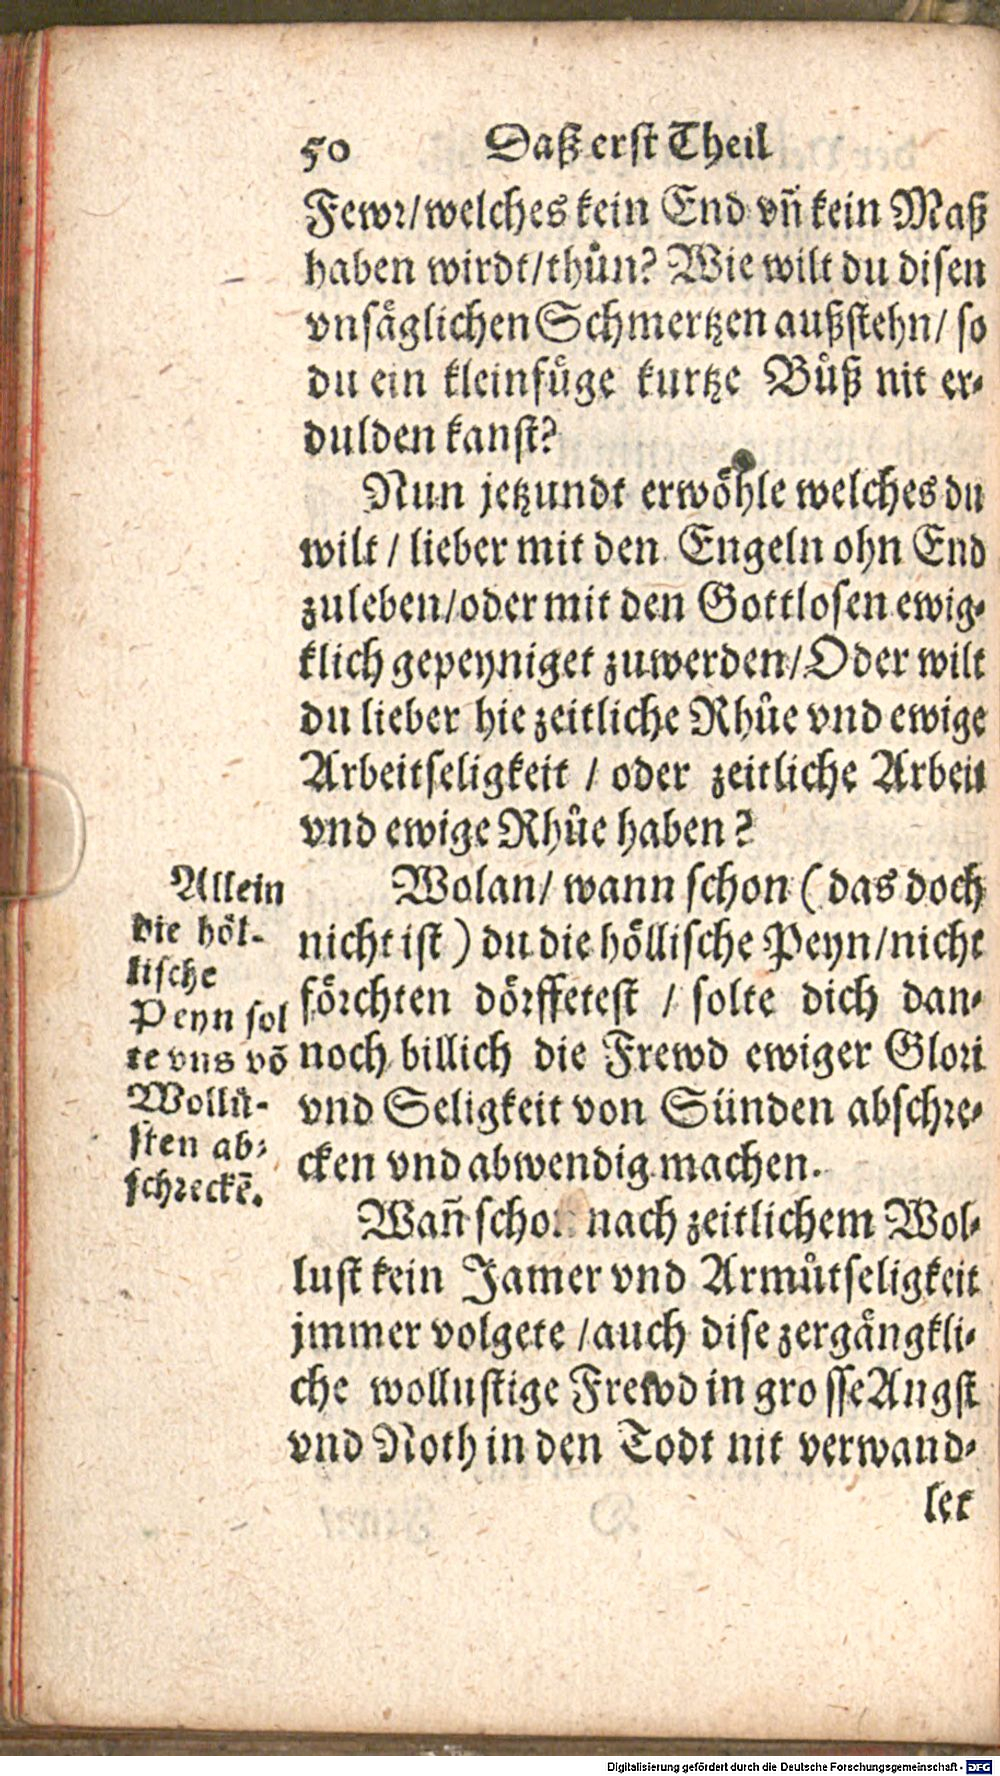 50 Daß erst Theil
Fewr/welches kein End vñ kein Maß
haben wirdt/thůn? Wie wilt du disen
vnsäglichen Schmertzen außstehn/ so
du ein kleinfüge kurtze Bůß nit er-
dulden kanst?
Nun jetzundt erwöhle welches du
wilt / lieber mit den Engeln ohn End
zuleben/oder mit den Gottlosen ewig-
klich gepeyniget zuwerden/Oder wilt
du lieber hie zeitliche Rhůe vnd ewige
Arbeitseligkeit / oder zeitliche Arbeit
vnd ewige Rhůe haben?
Wolan/ wann schon (das doch
nicht ist) du die höllische Peyn/nicht
förchten dörffetest / solte dich dan-
noch billich die Frewd ewiger Glori
vnd Seligkeit von Sünden abschre-
cken vnd abwendig machen.
Wañ schon nach zeitlichem Wol-
lust kein Jamer vnd Armůtseligkeit
jmmer volgete /auch dise zergängkli-
che wollustige Frewd in grosse Angst
vnd Noth in den Todt nit verwand-
let
Allein
die höl-
lische
Peyn sol
te vns võ
Wollü-
sten ab-
schreckẽ.
Digitalisierung gefördert durch die Deutsche Forschungsgemeinschaft - DFG